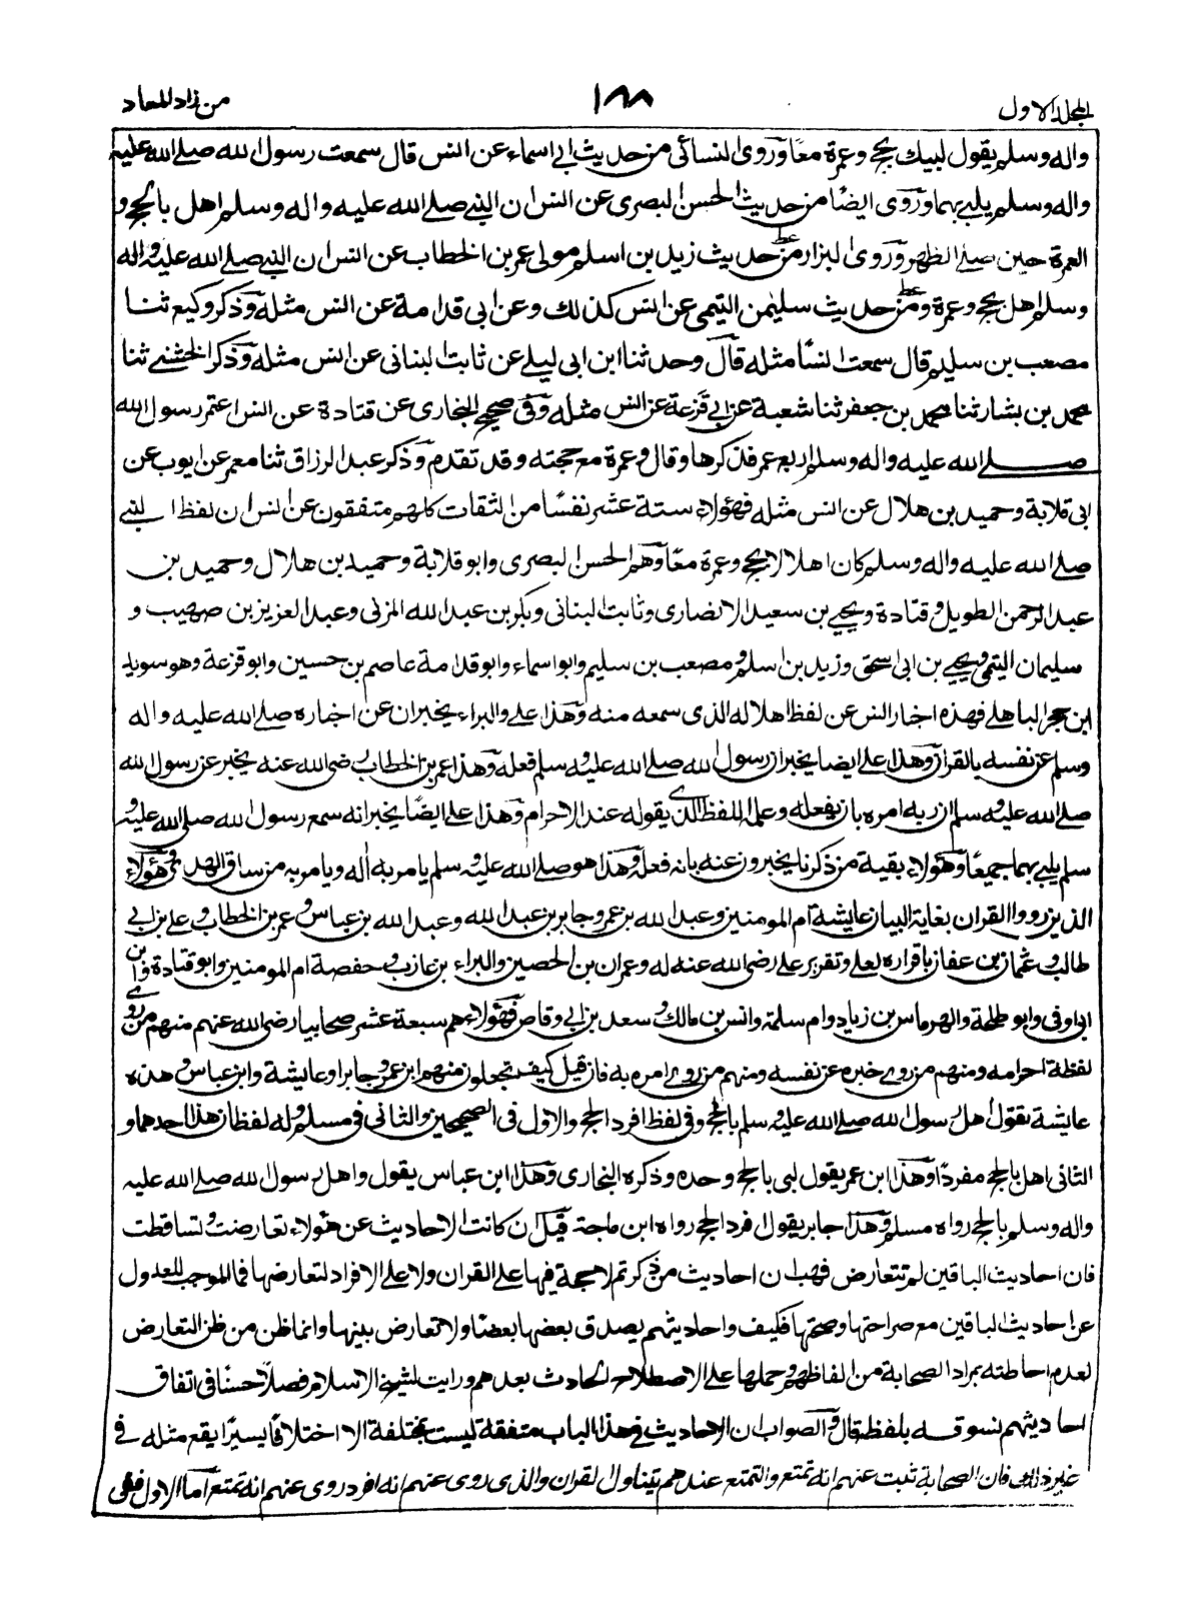 المجلد الاول
١٨٨
من زاد المعاد
واله وسلم يقول لبيك بحج وعمرة معًا وروى النسائى من حديث ابى اسماء عن انس قال سمعت رسول الله صلى الله عليه
واله وسلم يلبى بهما وروى ايضًا من حديث الحسن البصرى عن انس ان النبى صلى الله عليه واله وسلم اهل بالحج و
العمرة حين صلى الظهر وروى البزار من حديث زيد بن اسلم مولى عمر بن الخطاب عن انس ان النبى صلى الله عليه واله
وسلم اهل بحج وعمرة ومن حديث سليمن التيمى عن انس كذلك وعن ابى قدامة عن انس مثله وذكر وكيع ثنا
مصعب بن سليم قال سمعت انسًا مثله قال وحدثنا ابن ابى ليلى عن ثابت البنانى عن انس مثله وذكر الخشنى ثنا
محمد بن بشار ثنا محمد بن جعفر ثنا شعبة عن ابى قزعة عن انس مثله وفى صحيح البخارى عن قتادة عن انس اعتمر رسول الله
صلى الله عليه واله وسلم اربع عمر فذكرها وقال وعمرة مع حجته وقد تقدم وذكر عبد الرزاق ثنا معمر عن ايوب عن
ابى قلابة وحميد بن هلال عن انس مثله فهؤلاء ستة عشر نفسًا من الثقات كلهم متفقون عن انس ان لفظ النبى
صلى الله عليه واله وسلم كان اهلالا بحج وعمرة معًا وهم الحسن البصرى وابو قلابة وحميد بن هلال وحميد بن
عبد الرحمن الطويل وقتادة ويحيى بن سعيد الانصارى وثابت البنانى وبكر بن عبد الله المزنى وعبد العزيز بن صهيب و
سليمان التيمى ويحيى بن ابى اسحق وزيد بن اسلم ومصعب بن سليم وابو اسماء وابو قدامة عاصم بن حسين وابو قزعة وهو سويد
ابن حجر الباهلى فهذه اخبار انس عن لفظ اهلاله الذى سمعه منه وهذا على والبراء يخبران عن اخباره صلى الله عليه واله
وسلم عن نفسه بالقران وهذا على ايضا يخبر ان رسول الله صلى الله عليه وسلم فعله وهذا عمر بن الخطاب رضى الله عنه يخبر عن رسول الله
صلى الله عليه وسلم ان ربه امره بان يفعله وعلمه اللفظ الذى يقوله عند الاحرام وهذا على ايضًا يخبر انه سمع رسول الله صلى الله عليه و
سلم يلبى بهما جميعًا وهؤلاء بقية من ذكرنا يخبرون عنه بانه فعله وهذا هو صلى الله عليه وسلم يامر به اله ويامر به من ساق الهدى وهؤلاء
الذين رووا القران بغاية البيان عايشة ام المومنين وعبد الله بن عمر وجابر بن عبد الله وعبد الله بن عباس وعمر بن الخطاب وعلى بن ابى
طالب وعثمان بن عفان باقراره لعلى وتقرير على رضى الله عنه له وعمران بن الحصين والبراء بن عازب وحفصة ام المومنين وابو قتادة وابن
ابى اوفى وابو طلحة والهرماس بن زياد وام سلمة وانس بن مالك وسعد بن ابى وقاص فهؤلاء هم سبعة عشر صحابيا رضى الله عنهم منهم من روى
لفظة احرامه ومنهم من روى خبره عن نفسه ومنهم من روى امره به فان قيل كيف تجعلون منهم ابن عمر وجابرا وعايشة وابن عباس وهذه
عايشة تقول اهل رسول الله صلى الله عليه وسلم بالحج وفى لفظ افرد الحج والاول فى الصحيحين والثانى فى مسلم وله لفظان هذا احدهما و
الثانى اهل بالحج مفردًا وهذا ابن عمر يقول لبى بالحج وحده وذكره البخارى وهذا ابن عباس يقول واهل رسول الله صلى الله عليه
واله وسلم بالحج رواه مسلم وهذا جابر يقول افرد الحج رواه ابن ماجة قيل ان كانت الاحاديث عن هؤلاء تعارضت وتساقطت
فان احاديث الباقين لم تتعارض فهب ان احاديث من ذكرتم لا حجة فيها على القران ولا على الافراد لتعارضها فما الموجب للعدول
عن احاديث الباقين مع صراحتها وصحتها فكيف واحاديثهم يصدق بعضها بعضًا ولا تعارض بينها وانما ظن من ظن التعارض
لعدم احاطته بمراد الصحابة من الفاظهم وحملها على الاصطلاح الحادث بعدهم ورايت لشيخ الاسلام فصلًا حسنًا فى اتفاق
احاديثهم نسوقه بلفظه قال والصواب ان الاحاديث فى هذا الباب متفقة ليست بمختلفة الا اختلافًا يسيرًا يقع مثله فى
غير ذلك فان الصحابة ثبت عنهم انه تمتع والتمتع عندهم يتناول القران والذى روى عنهم انه افرد روى عنهم انه تمتع اما الاول ففى